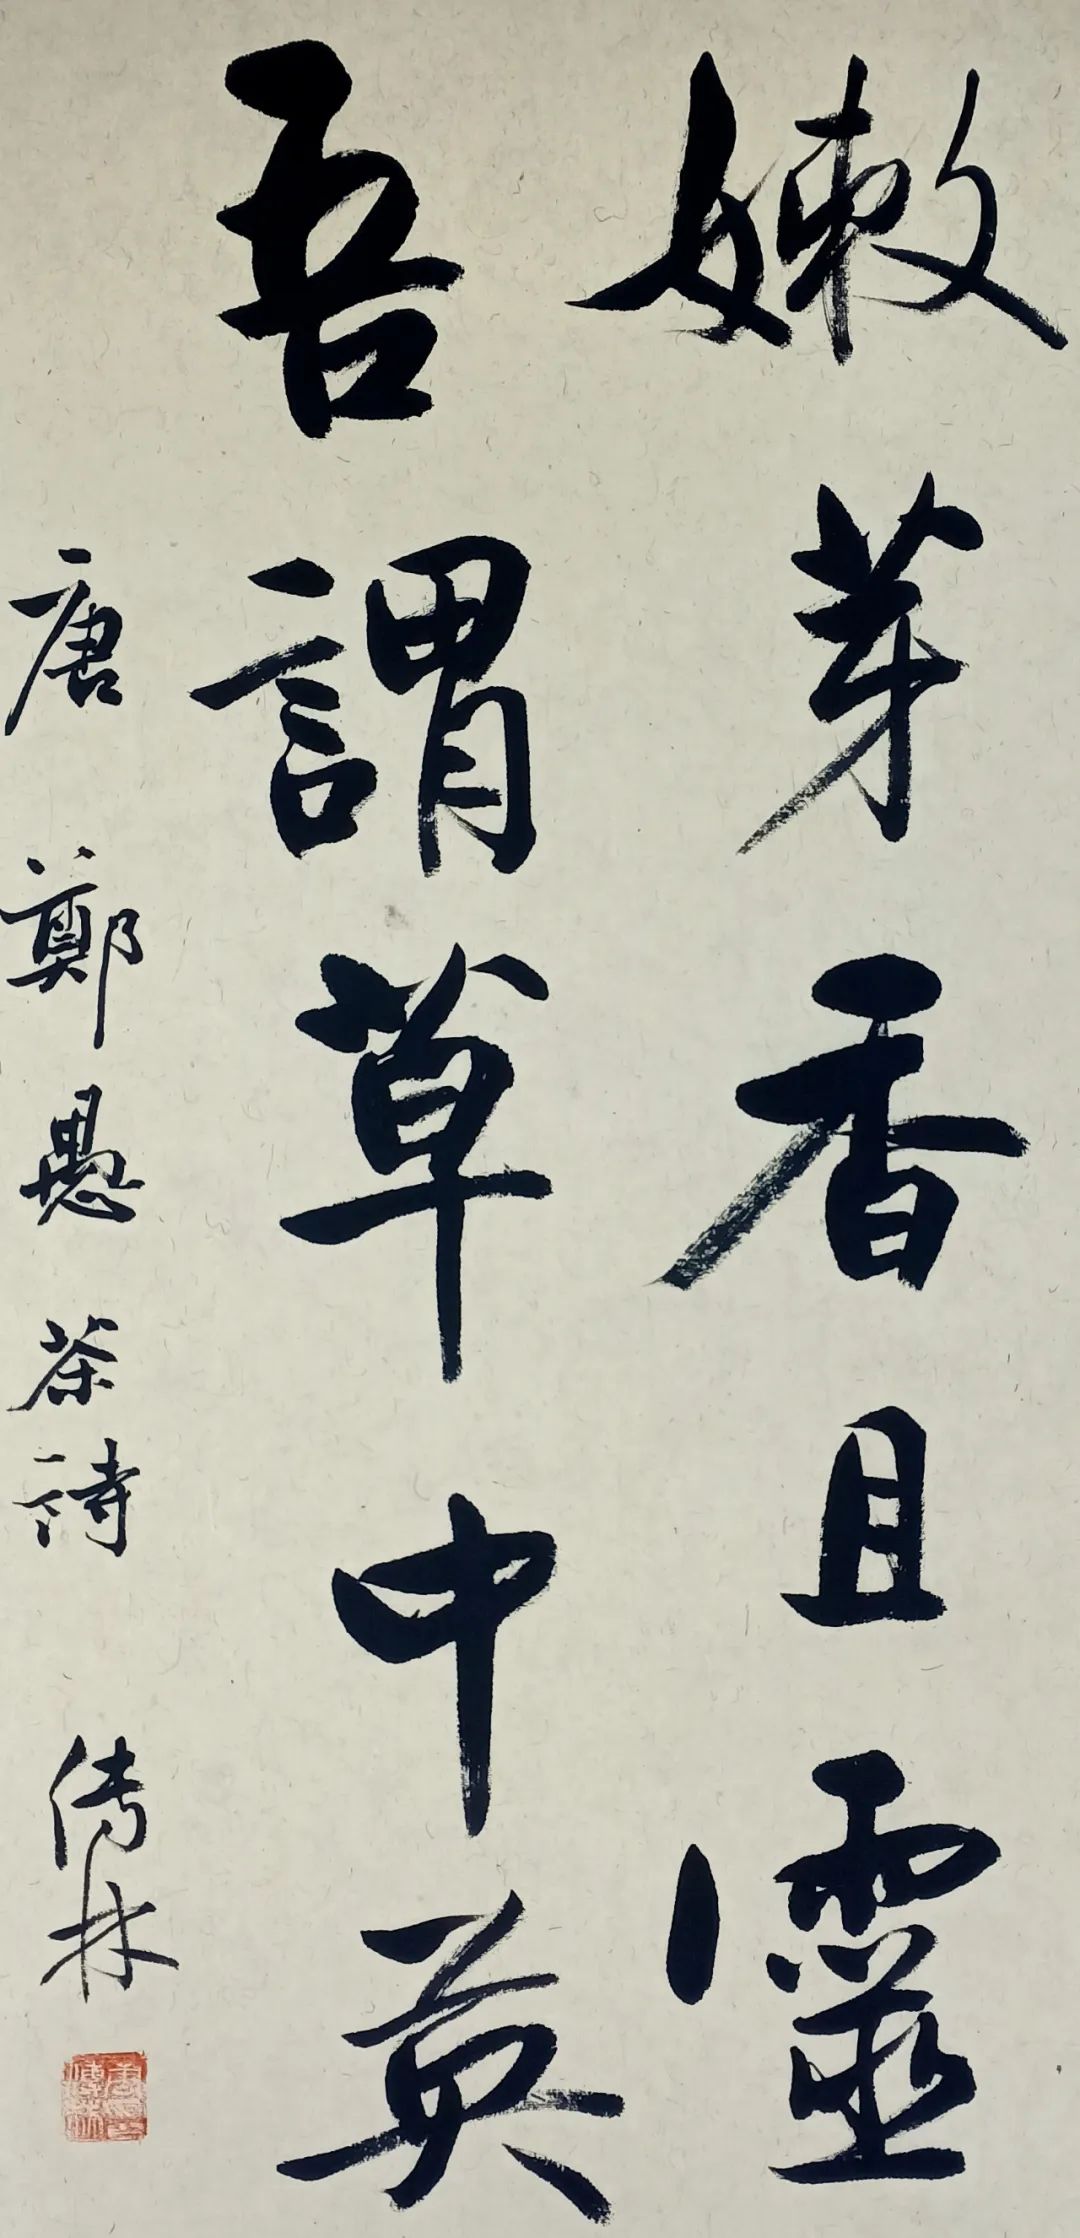 嫩芽香且靈
吾謂草中英
唐鄭愚茶詩 傳林